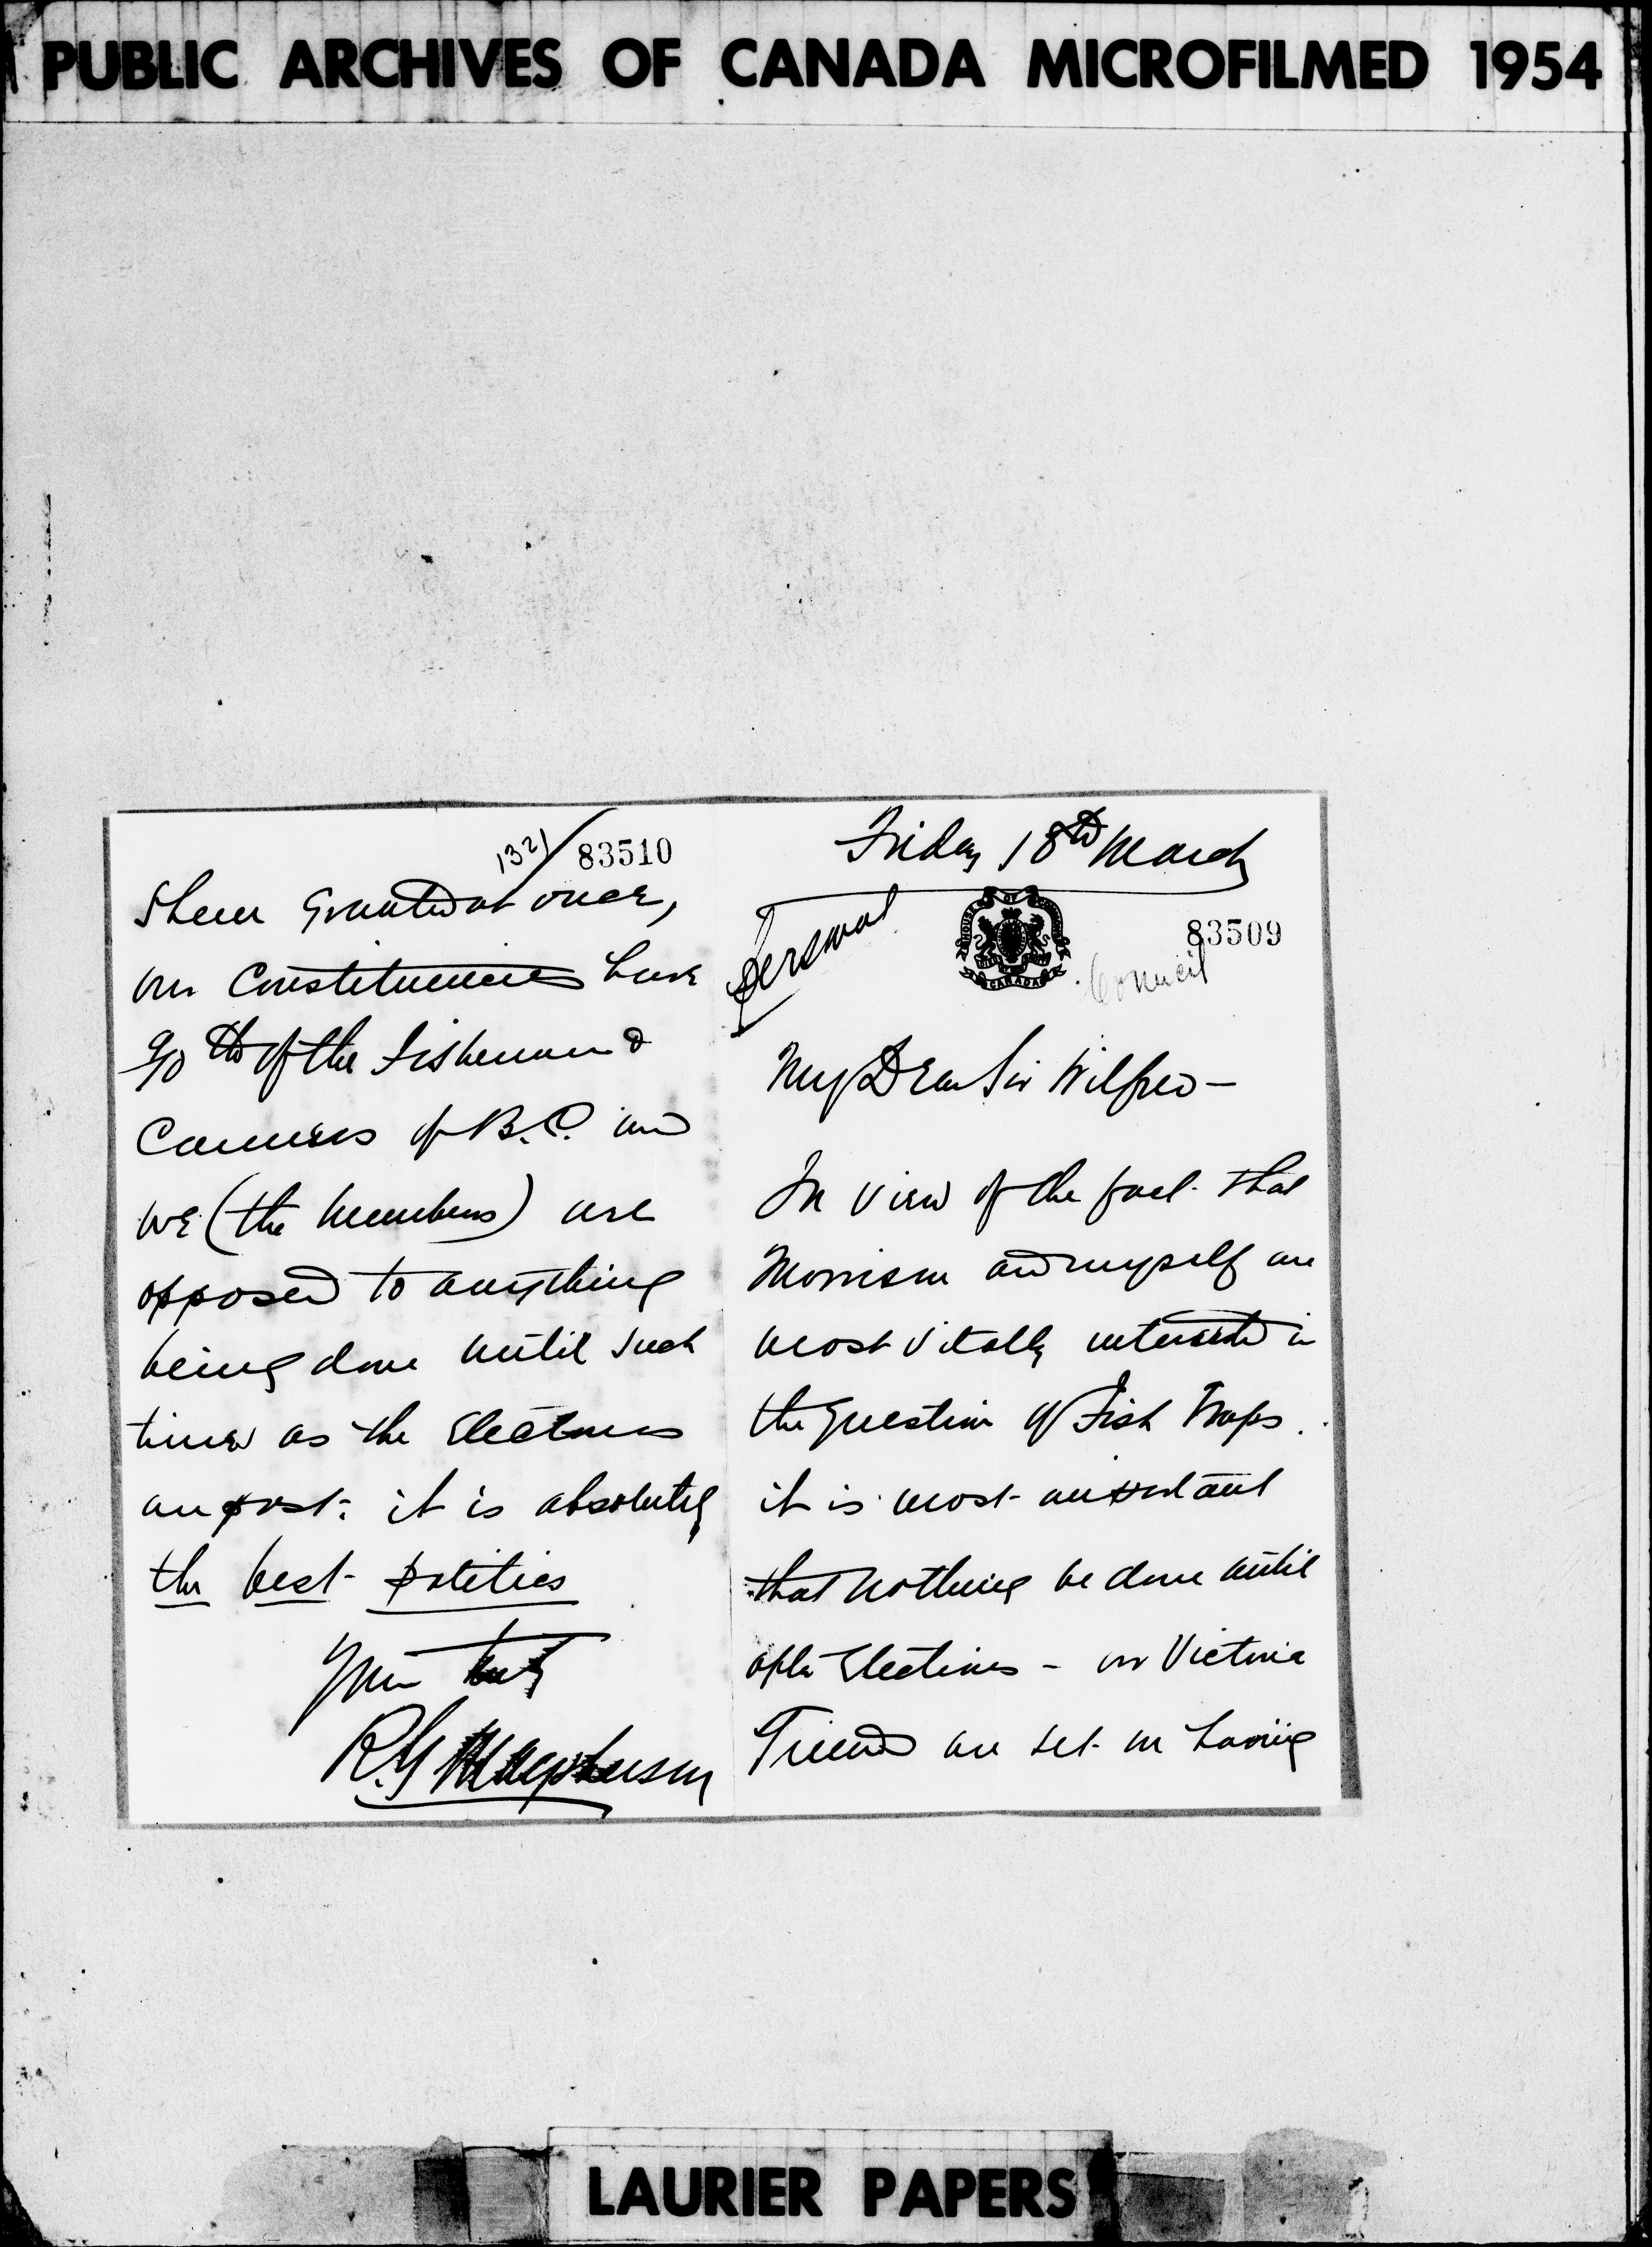 PUBLIC ARCHIVES OF CANADA MICROFILMED 1954
Friday 18th March
Personal
HOUSE OF COMMONS
CANADA
83509
Council
My Dear Sir Wilfred —
In view of the fact that
Morrison and myself are
most vitally interested in
the question of Fish Traps.
it is most important
that nothing be done until
after Elections - our Victoria
Friends are set on having
1321/ 83510
them granted at once,
our Constituencies have
9/10 ths of the Fishermen &
Canners of B.C. and
we (the members) are
opposed to anything
being done until such
time as the Elections
are past: it is absolutely
the best politics
Yours truly
R.G Macpherson
LAURIER PAPERS